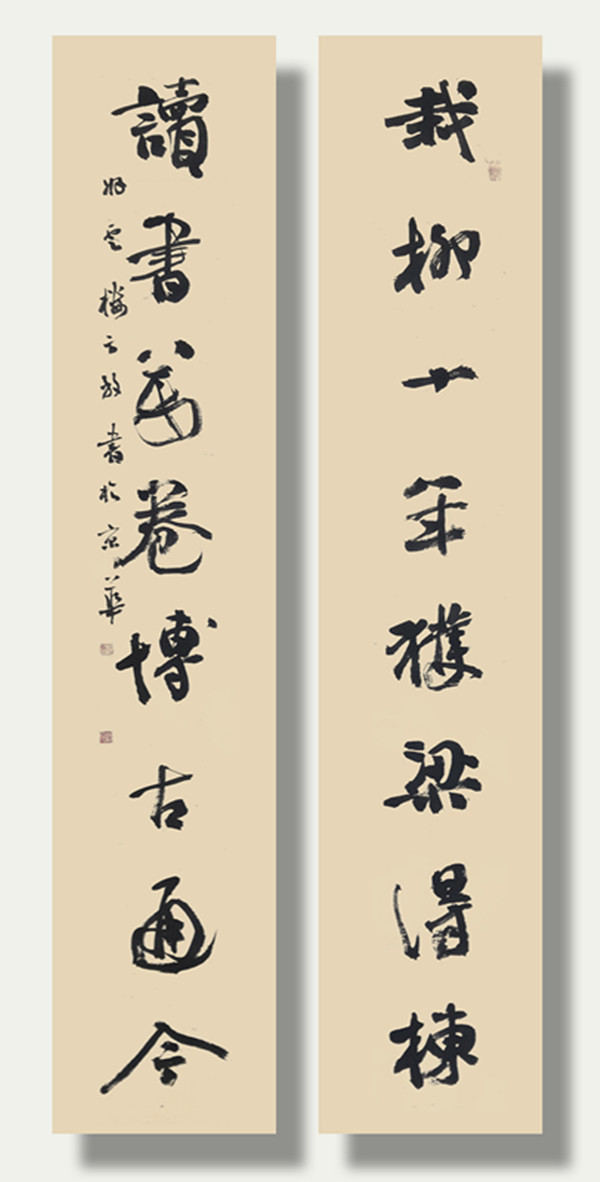 栽柳十年獲梁得棟
讀書萬卷博古通今
好雲樓主敬書於京華